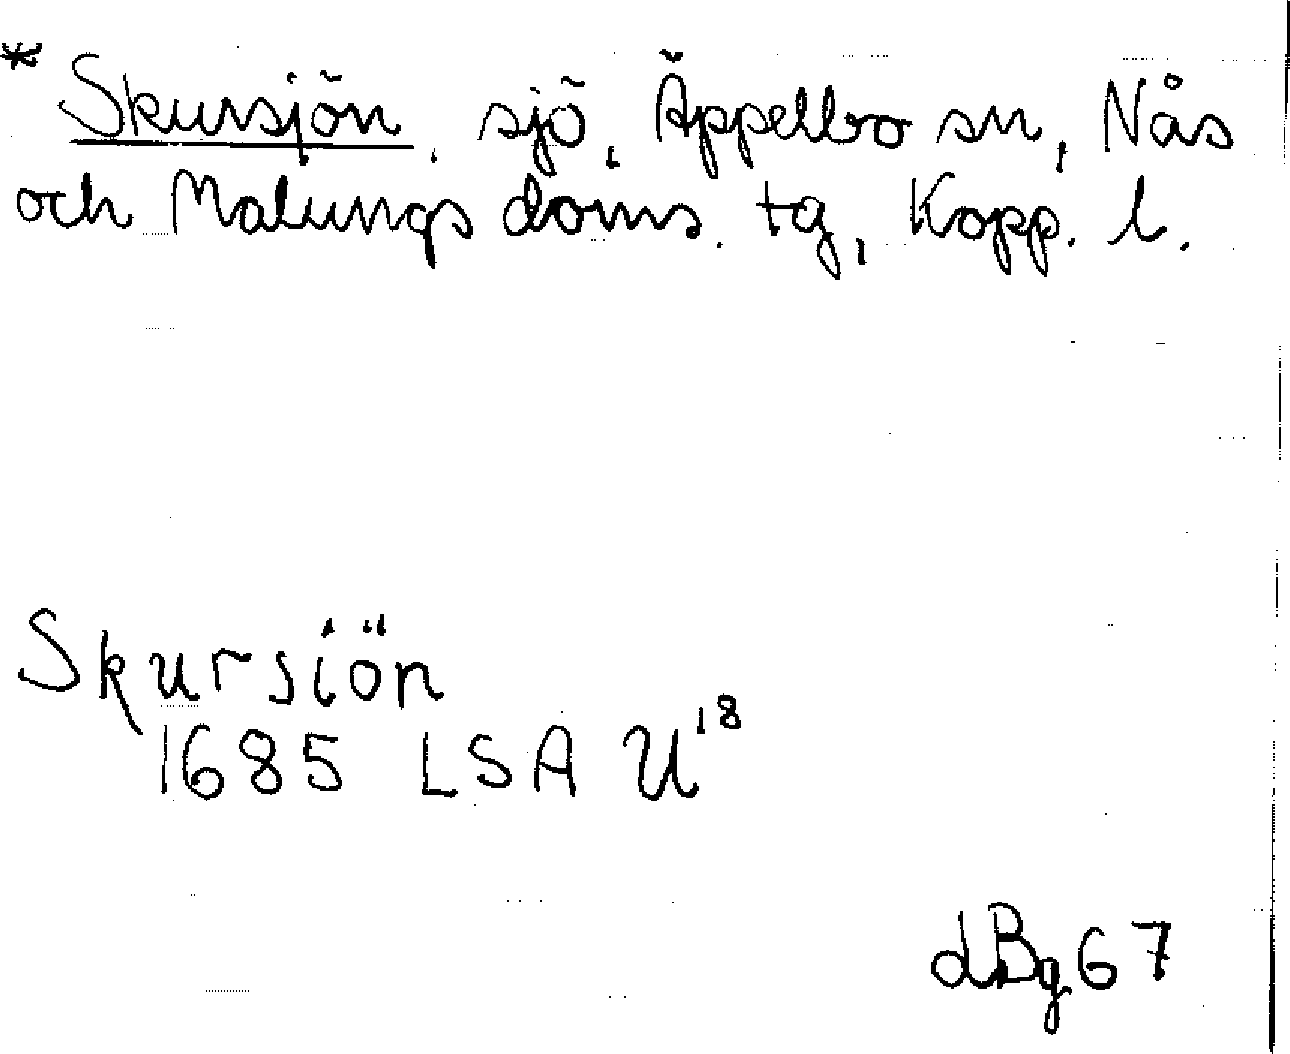 * Skursjön, sjö, Äppelbo sn, Nås
och Malungs doms. tg, Kopp. l.
Skursiön
1685 LSA U18
dBg67